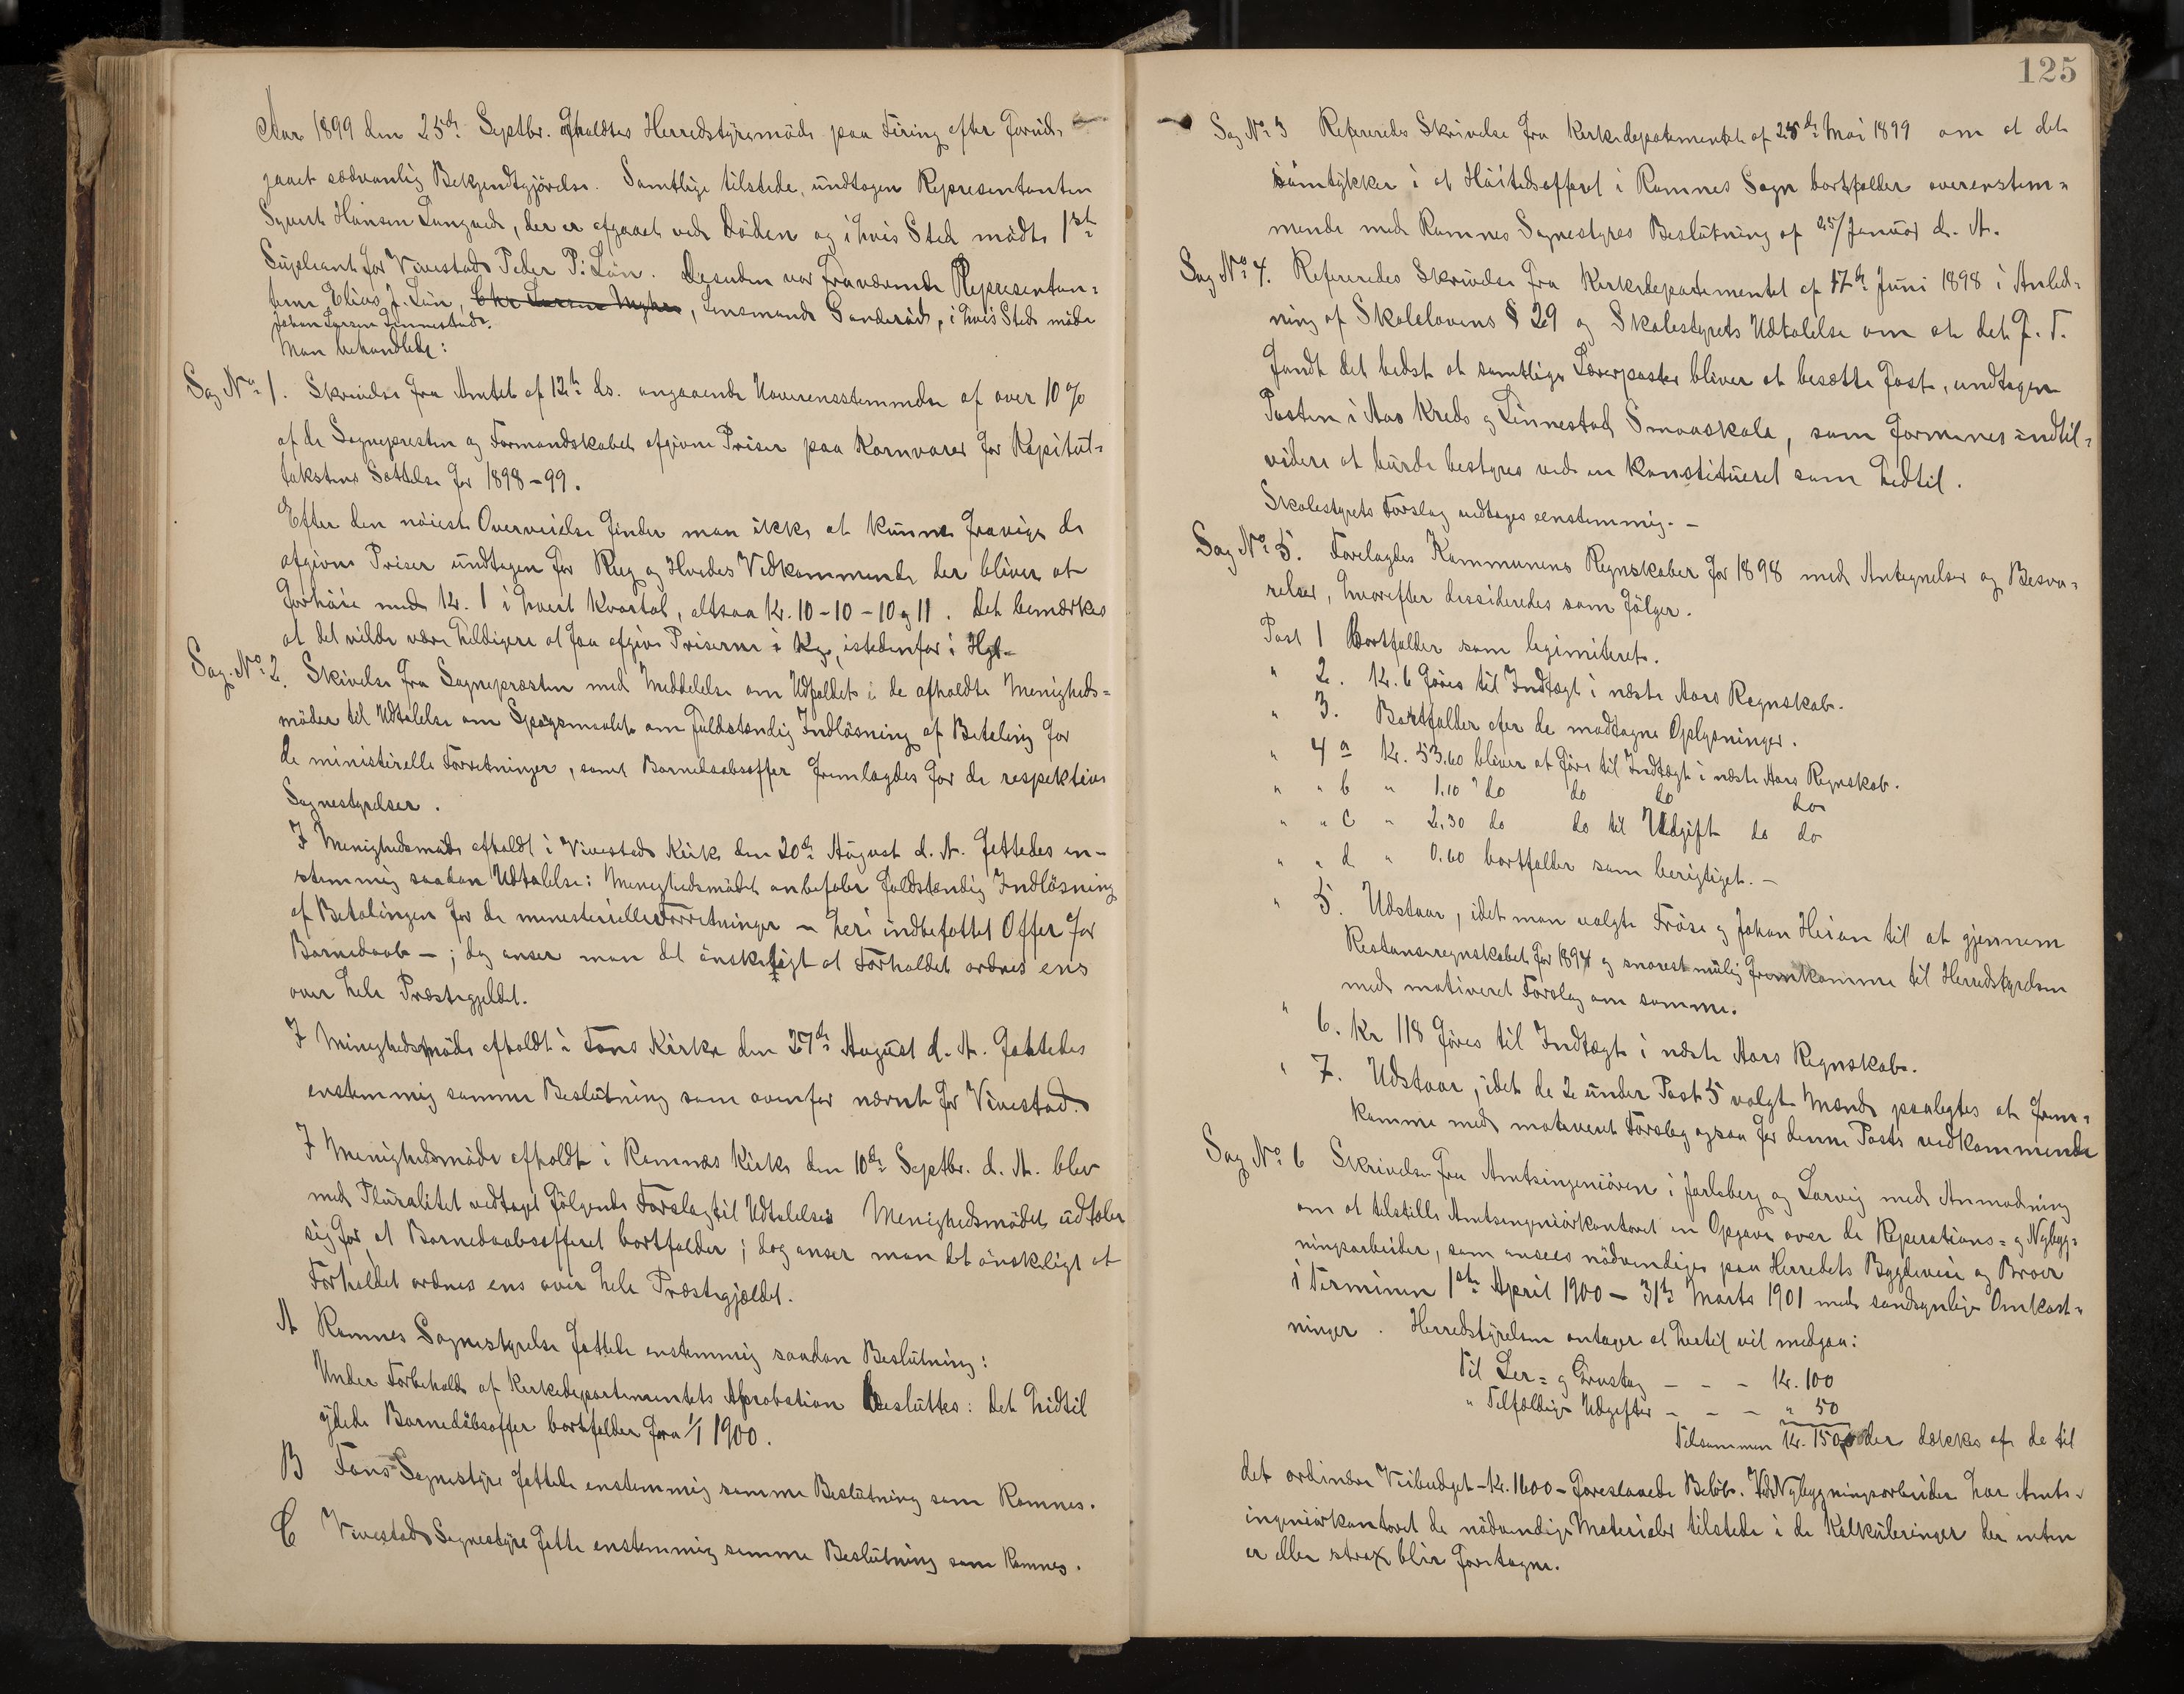 Aar 1899 den 25de Septbr. afholdtes Herredstyresmöde paa Firing efter forud-
gaaet sædvanlig Bekjendtgjörelse. Samtlige tilstede, undtagen Representanten
Syvert Hansen Langved, der er afgaaet ved Döden og i hvis Sted mödte 1ste
Supleant for Vivestad Peder P. Lün. Desuden var fraværende Representan-
terne Elias J. Lün, Chr Larsen Myhre, Lensmand Sanderöd, i hvis Sted möde
Johan Larsen Linnestad.
Man behandlede:
Sag No 1. Skrivelse fra Amtet af 12te ds. angaaende Uoverensstemmelse af over 10 %
af de Sognepresten og Formandskabet afgivne Priser paa Kornvarer for Kapitul-
takstens Sættelse for 1898-99.
Efter den nöieste Overveielse finder man ikke at kunne fravige de
afgivne Priser undtagen for Rug og Hvedes Vedkommende der bliver at
forhöie med Kr. 1 i hvert Kvartal, altsaa Kr. 10-10-10 og 11. Det bemærkes
at det vilde være heldigere at faa afgive Priserne i Kg, istedenfor i Hgl.
Sag No 2. Skivelse fra Sognepræsten med Meddelelse om Udfaldet i de afholdte Menigheds-
möder til Udtalelse om Spørgsmaalet om fuldstændig Indlösning af Betaling for
de ministerielle Forretninger, samt Barnedaabsoffer fremlagdes for de respektive
Sognestyrelser.
I Menighedsmöde afholdt i Vivestad Kirke den 20de August d. A. fattedes en-
stemmig saadan Udtalelse: Menighedsmödet anbefaler fuldstændig Indlösning
af Betalingen for de menesterielle Forretninger - heri indbefattet Offer for
Barnedaab - ; dog anser man det önskeligt at Forholdet ordnes ens
over hele Præstegjeldet.
I Menighedsmöde afholdt i Fons Kirke den 27de August d. A. fattedes
enstemmig samme Beslutning som ovenfor nævnt for Vivestad.
I Menighedsmöde afholdt i Ramnæs Kirke den 10de Septbr. d. A. blev
med Pluralitet vedtaget fölgende Forslag til Udtalelse: Menighedsmödet udtaler
sig for at Barnedaabsofferet bortfalder ; dog anser man det önskeligt at
Forholdet ordnes ens over hele Præstegjældet.
A Ramnes Sognestyrelse fattede enstemmig saadan Beslutning:
Under Forbehold af Kirkedepartementets Aprobation besluttes: det hidtil
ydede Barnedåbsoffer bortfalder fra 1/1 1900.
B Fons Sognestyre fattede enstemmig samme Beslutning som Ramnes.
C Vivestad Sognestyre fatte enstemmig samme Beslutning som Ramnes.
125
Sag No 3 Refereredes Skrivelse fra Kerkedepatementet af 25de Mai 1899 om at det
samtykker i at Höitidsofferet i Ramnes Sogn bortfalder overenstem-
mende med Ramnes Sognestyres Beslutning af 25/Januar d. A.
Sag No 4. Refereredes Skrivelse fra Kerkedepartementet af 17de Juni 1898 i Anled-
ning af Skolelovens § 29 og Skolestyrets Udtalelse om at det f. T.
fandt det bedst at samtlige Lærerposter bliver at besætte fast, undtagen
Posten i Aas Kreds og Linnestad Smaaskole, som formenes indtil-
videre at burde bestyres ved en Konstitueret som hidtil.
Skolestyrets Forslag vedtoges eenstemmig. -
Sag No 5. Forelagdes Kommunens Regnskaber for 1898 med Antegnelser og Besva-
relser, hvorefter dessideredes som fölger.
Post 1 Bortfalder som legimiteret.
" 2. Kr. 6 föres til Indtægt i næste Aars Regnskab.
" 3. Bortfalder efter de modtagne Oplysninger.
" 4 a Kr. 53.60 bliver at före til Indtægt i næste Aars Regnskab.
" " b " 1.10 do do do do
" " c " 2.30 do do til Udgift do do
" " d " 0.60 bortfalder som berigtiget. -
" 5. Udstaar, idet man valgte Fröse og Johan Heian til at gjennem
Restanseregnskabet for 1897 og snarest mulig fremkomme til Herredstyrelsen
med motiveret Forslag om samme.
" 6. Kr 118 föres til Indtægt i næste Aars Regnskab.
" 7. Udstaar, idet de 2 under Post 5 valgte Mænd paalagdes at frem-
komme med motiveret Forslag ogsaa for denne Posts vedkommende
Sag No 6 Skrivelse fra Amtsingeniören i Jarlsberg og Larvig med Anmodning
om at tilstille Amtsingeniörkontoret en Opgave over de Reperations- og Nybyg-
ningsarbeider, som ansees nödvendige paa Herredets Bygdeveie og Broer
i Terminen 1ste April 1900 - 31te Marts 1901 med sandsynlige Omkost-
ninger. Herredstyrelsen antager at hertil vil medgaa:
Til Ler- og Grustag - - - Kr. 100
" Tilfældige Udgifter - - - " 50
Tilsammen Kr. 150 der dækkes af de til
det ordinære Veibudget - Kr. 1600 - foreslaaede Belöb. Ved Nybygningsarbeider har Amts-
ingeniörkontoret de nödvendige Materialer tilstede i de Kalkuleringer der enten
er eller strax blir foretagne.